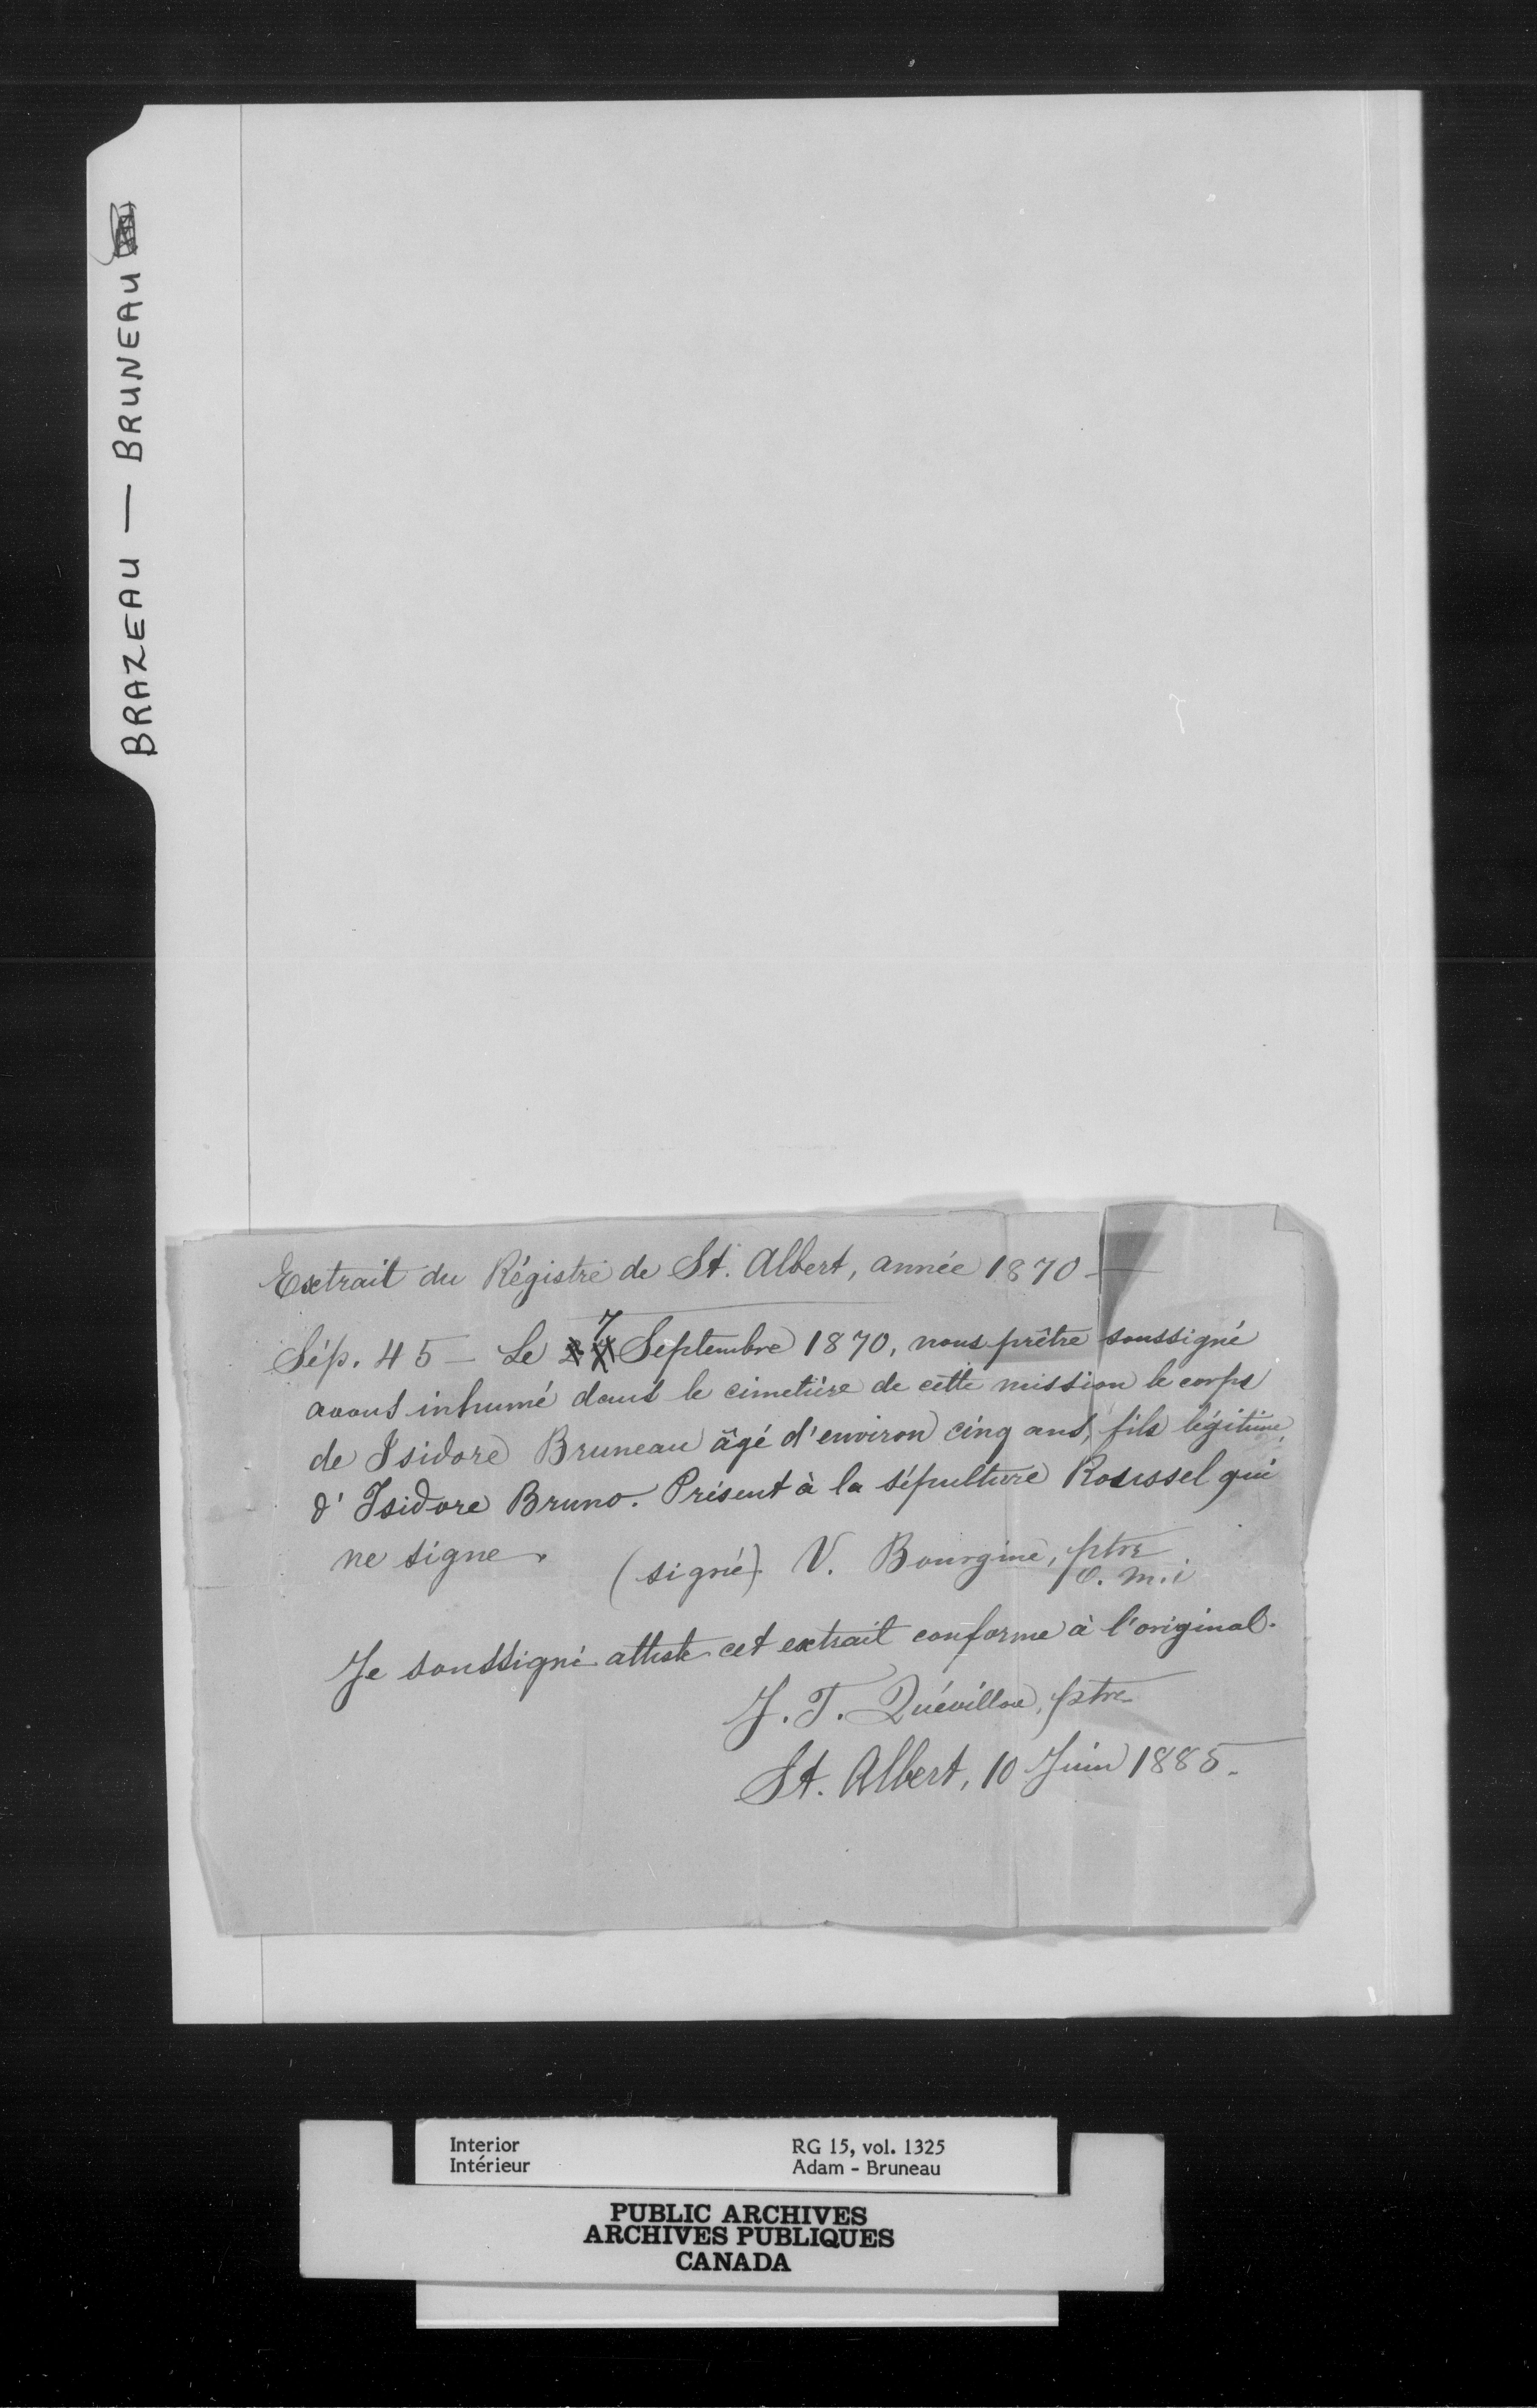 BRAZEAU — BRUNEAU
Extrait du Régistre de St. Albert, année 1870 —
Sép. 45 — Le 7 Septembre 1870, nous prêtre soussigné
avons inhumé dans le cimetière de cette mission le corps
de Isidore Bruneau âgé d'environ cinq ans, fils légitime
d'Isidore Bruno. Présent à la sépulture Roussel qui
ne signe. (signé) V. Bourgine, ptre
o.m.i
Je soussigné atteste cet extrait conforme à l'original.
J. T. Quévillon, ptre
St. Albert, 10 Juin 1885.
Interior RG 15, vol. 1325
Intérieur Adam - Bruneau
PUBLIC ARCHIVES
ARCHIVES PUBLIQUES
CANADA